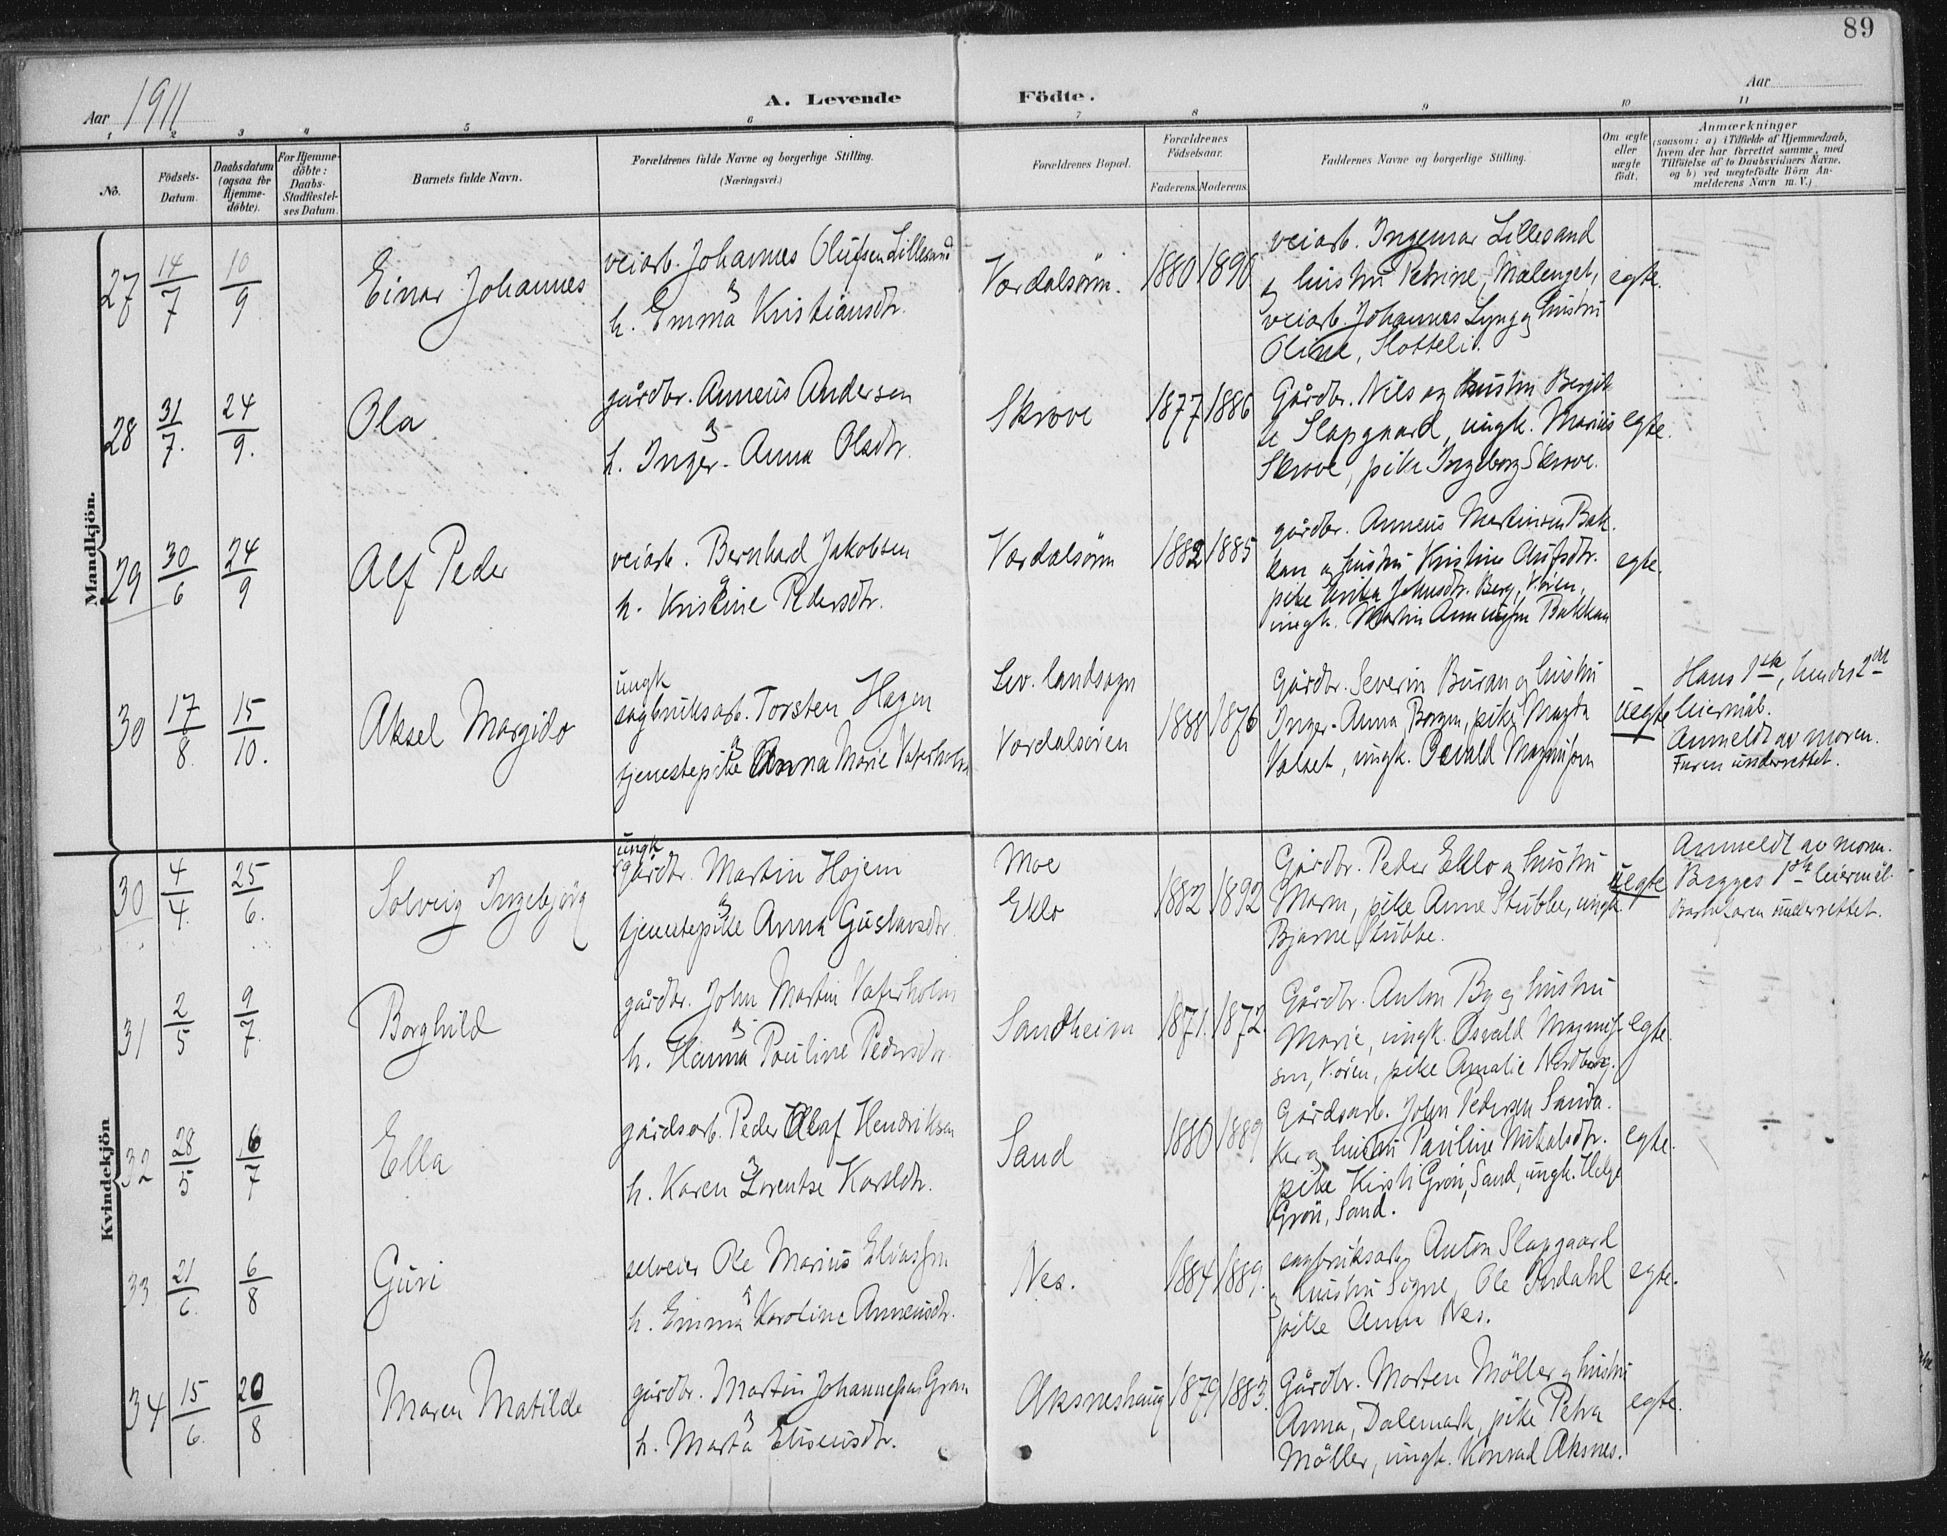 89
Aar 1911
A. Levende Födte.
Aar
1 2 3 4 5 6 7 8 9 10 11
No.
Födsels-Datum.
Daabsdatum (ogsaa for Hjemme-döbte).
For Hjemme-döbte: Daabs-Stadfæstel-ses Datum.
Barnets fulde Navn.
Forældrenes fulde Navne og borgerlige Stilling. (Næringsvei.)
Forældrenes Bopæl.
Forældrenes Födselsaar.
Faderens. Moderens.
Faddernes Navne og borgerlige Stilling.
Om ægte eller uægte födt.
Anmærkninger
(saasom: a) i Tilfælde af Hjemmedaab, hvem der har forrettet samme, med Tilföielse af to Daabsvidners Navne, og b) ved uægtefödte Börn An-melderens Navn m. V.)
Mandkjön.
27 14/7 10/9 Einar Johannes
veiarb. Johannes Olufsen Lillesand
og
h. Emma Kristiansdtr.
Værdalsøren. 1880 1890
veiarb. Ingemar Lillesand
og hustru Petrine, Mælenget,
veiarb. Johannes Lyng og hustru
Oline, Slotteli.
egte.
28 31/7. 24/9. Ola
gårdbr. Anneus Andersen
og
h. Inger-Anna Olsdtr.
Skrove 1877 1886
Gårdbr. Nils og hustru Bergit-
te Slapgaard, ungk. Marius
Skrove, pike Ingeborg Skrove.
egte.
29 30/6 24/9 Alf Peder
veiarb. Bernhard Jakobsen
og
h. Kristine Pedersdtr.
Værdalsøren 1882 1885
gårdbr. Anneus Martinsen Bak-
kan og hustru Kristine Olufsdtr.
pike Johnsdtr. Berg, V.ören,
ungk. Martin Anneusen Bakkan
egte.
30 17/8. 15/10. Aksel Margido
ungk
sagbruksarb. Torsten Hagen
og
tjenestepike Anna Marie Vaterholm
Lev. landsogn
Værdalsøren 1888 1876
Gårdbr. Severin Buran og hustru
Inger-Anna, Borgen, pike Magda
Valset, ungk. Osvald Magnusen
uegte
Hans 1ste, hendes 2det
leiermål.
Anmeldt av moren.
Faren underrettet.
Kvindekjön
30 4/4 25/6. Solveig Ingebjörg
ungk
gårdbr. Martin Hojem
og
tjenestepike Anna Gustavsdtr.
Moe
Eklo 1882 1892
Gårdbr. Peder Eklo og hustru
Maren, pike Anna Stubbe, ungk.
Bjarne Stubbe.
uegte
Anmeldt av moren.
Begges 1ste leiermål.
Barnefaren underrettet.
31 2/5 9/7. Borghild
gårdbr. John Martin Vaterholm
og
h. Hanna Pauline Pedersdtr.
Sandheim 1871. 1872.
Gårdbr. Anton By og hustru
Marie, ungk. Osvald Magnus-
sen, V.ören, pike Amalie Nordberg.
egte.
32 28/5 16/7 Ella
gårdsarb. Peder Olaf Hendriksen
og
h. Karen Lorentse Karlsdtr.
Sand 1880 1889
Gårdsarb. John Pedersen Sanda-
ker og hustru Pauline Mikalsdtr.
pike Kirsti Grön, Sand, ungk. Helge
Grön, Sand.
egte.
33 21/6. 6/8 Guri
selveier Ole Marius Eliassen
og
h. Emma Karoline Anneusdtr.
Nes. 1884 1889.
sagbruksarb. Anton Slapgaard
og hustru Signe, Ole Ordahl
pike Anna Nes.
egte.
34 15/6. 20/8 Maren Matilde
gårdbr. Martin Johannesen Gran
og
h. Marta Eliseusdtr.
Aksneshaug 1879 1883.
Gårdbr. Morten Möller og hustru
Anna, Dalemark, pike Petra
Möller, ungk. Konrad Aksnes.
egte.